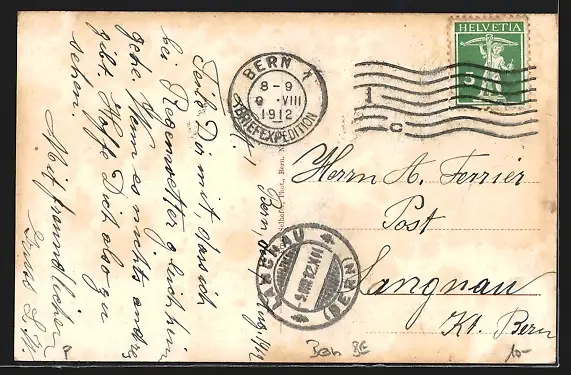 Bern, d. Aug. 1912
Teile Dir mit, dass ich
bei Regenwetter gleich hin
gehe. Wenn es nichts anderes
gibt. Hoffe Dich also zu
sehen.
Mit freundlichen
HELVETIA
5
BERN 1
8-9
9 VIII
1912
BRIEFEXPEDITION
Herrn A. Ferrier
Post
Langnau
Kt. Bern
LANGNAU
(BERN)
Bern BE
10-